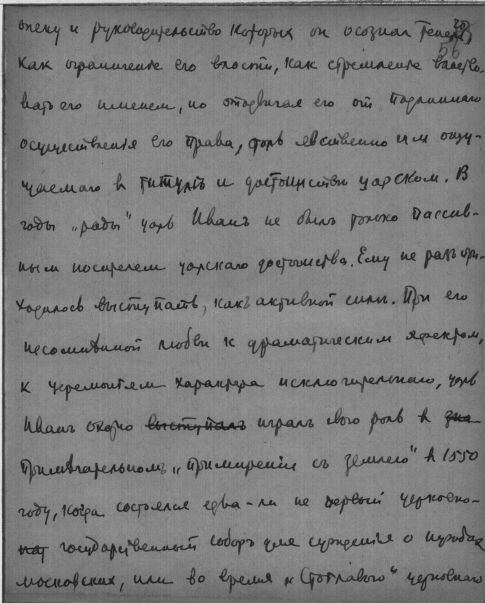 опеку и руководительство которых он осознал теперь,
56
как ограничение его власти, как стремление властво-
вать его именем, но отодвигая его от подлиннаго
осуществленія его права, столь явственно им ощу-
щаемаго в титулѣ и достоинствѣ царском. В
годы „рады" царь Иванъ не былъ только пассив-
ным носителем царскаго достоинства. Ему не разъ при-
ходилось выступать, какъ активной силы. При его
несомнѣнной любви к драматическим эфектам,
к церемоніям характера исключительнаго, царь
Иванъ охотно выступалъ игралъ свою роль в зна
примѣчательномъ „примиреніи съ землею" в 1550
году, когда состоялся едва-ли не первый церковно-
государственный соборъ для сужденія о нуждах
московских, или во время „Стоглаваго" церковнаго